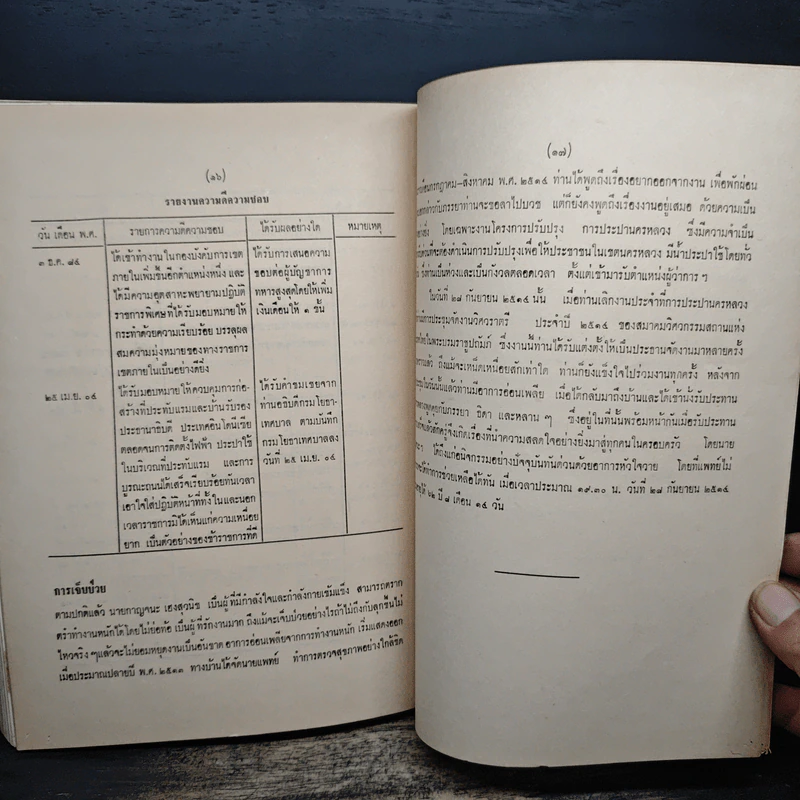 (๑๖)
รายงานความดีความชอบ
วัน เดือน พ.ศ. รายการความดีความชอบ ได้รับผลอย่างใด หมายเหตุ
๓ ธ.ค. ๘๔ ได้เข้าทำงาน ในกองบังคับการเขต ได้รับการเสนอความ
ภายในเพิ่มขึ้นอีกตำแหน่งหนึ่ง และ ชอบต่อผู้บัญชาการ
ได้มีความอุตสาหะพยายามปฏิบัติ ทหารสูงสุดโดยให้เพิ่ม
ราชการพิเศษที่ได้รับมอบหมายให้ เงินเดือนให้ ๑ ขั้น
กระทำด้วยความเรียบร้อย บรรลุผล
สมความมุ่งหมายของทางราชการ
เขตภายในเป็นอย่างดียิ่ง
๒๕ เม.ย. ๐๔ ได้รับมอบหมายให้ควบคุมการก่อ- ได้รับคำชมเชยจาก
สร้างที่ประทับแรมและบ้านรับรอง ท่านอธิบดีกรมโยธา-
ประธานาธิบดี ประเทศอินโดนีเซีย เทศบาล ตามบันทึก
ตลอดจนการติดตั้งไฟฟ้า ประปาใช้ กรมโยธาเทศบาลลง
ในบริเวณที่ประทับแรม และการ วันที่ ๒๕ เม.ย. ๐๔
บูรณะถนนได้เสร็จเรียบร้อยทันเวลา
เอาใจใส่ปฏิบัติหน้าที่ทั้งในและนอก
เวลาราชการมิได้เห็นแก่ความเหนื่อย
ยาก เป็นตัวอย่างของข้าราชการที่ดี
การเจ็บป่วย
ตามปกติแล้ว นายกาญจนะ เฮงสุวนิช เป็นผู้ที่มีกำลังใจและกำลังกายเข้มแข็ง สามารถตราก
ตรำทำงานหนักได้โดยไม่ย่อท้อ เป็นผู้ที่รักงานมาก ถึงแม้จะเจ็บป่วยอย่างไรถ้าไม่ถึงกับลุกขึ้นไม่
ไหวจริง ๆ แล้วจะไม่ยอมหยุดงานเป็นอันขาด อาการอ่อนเพลียจากการทำงานหนัก เริ่มแสดงออก
เมื่อประมาณปลายปี พ.ศ. ๒๕๑๓ ทางบ้านได้จัดนายแพทย์ ทำการตรวจสุขภาพอย่างใกล้ชิด
(๑๗)
กรกฎาคม-สิงหาคม พ.ศ. ๒๕๑๔ ท่านได้พูดถึงเรื่องอยากออกจากงาน เพื่อพักผ่อน
กล่าวกับภรรยาท่านจะขอลาไปบวช แต่ก็ยังคงพูดถึงเรื่องงานอยู่เสมอ ด้วยความเป็น
โดยเฉพาะงานโครงการปรับปรุง การประปานครหลวง ซึ่งมีความจำเป็น
ด่วนที่จะต้องดำเนินการปรับปรุงเพื่อให้ประชาชนในเขตนครหลวง มีน้ำประปาใช้โดยทั่ว
ซึ่งท่านเป็นห่วงและเป็นกังวลตลอดเวลา ตั้งแต่เข้ามารับตำแหน่งผู้ว่าการ ๆ
ในวันที่ ๒๗ กันยายน ๒๕๑๔ นั้น เมื่อท่านเลิกงานประจำที่การประปานครหลวง
มีการประชุมจัดงานวิศวราตรี ประจำปี ๒๕๑๔ ของสมาคมวิศวกรรมสถานแห่ง
ไทยในพระบรมราชูปถัมภ์ ซึ่งงานนี้ท่านได้รับแต่งตั้งให้เป็นประธานจัดงานมาหลายครั้ง
แล้ว ถึงแม้จะเหน็ดเหนื่อยสักเท่าใด ท่านก็ยังแข็งใจไปร่วมงานทุกครั้ง หลังจาก
ในวันนั้นแล้วท่านมีอาการอ่อนเพลีย เมื่อได้กลับมาถึงบ้านและได้เข้านั่งรับประทาน
พูดคุยกับภรรยา ธิดา และหลาน ๆ ซึ่งอยู่ในที่นั้นพร้อมหน้ากันเมื่อรับประทาน
สักครู่จึงเกิดเรื่องที่นำความสลดใจอย่างยิ่งมาสู่ทุกคนในครอบครัว โดยนาย
ได้ถึงแก่อนิจกรรมอย่างปัจจุบันทันด่วนด้วยอาการหัวใจวาย โดยที่แพทย์ไม่
ได้ทำการช่วยเหลือได้ทัน เมื่อเวลาประมาณ ๑๙.๓๐ น. วันที่ ๒๗ กันยายน ๒๕๑๔
ได้ ๖๒ ปี ๘ เดือน ๑๔ วัน